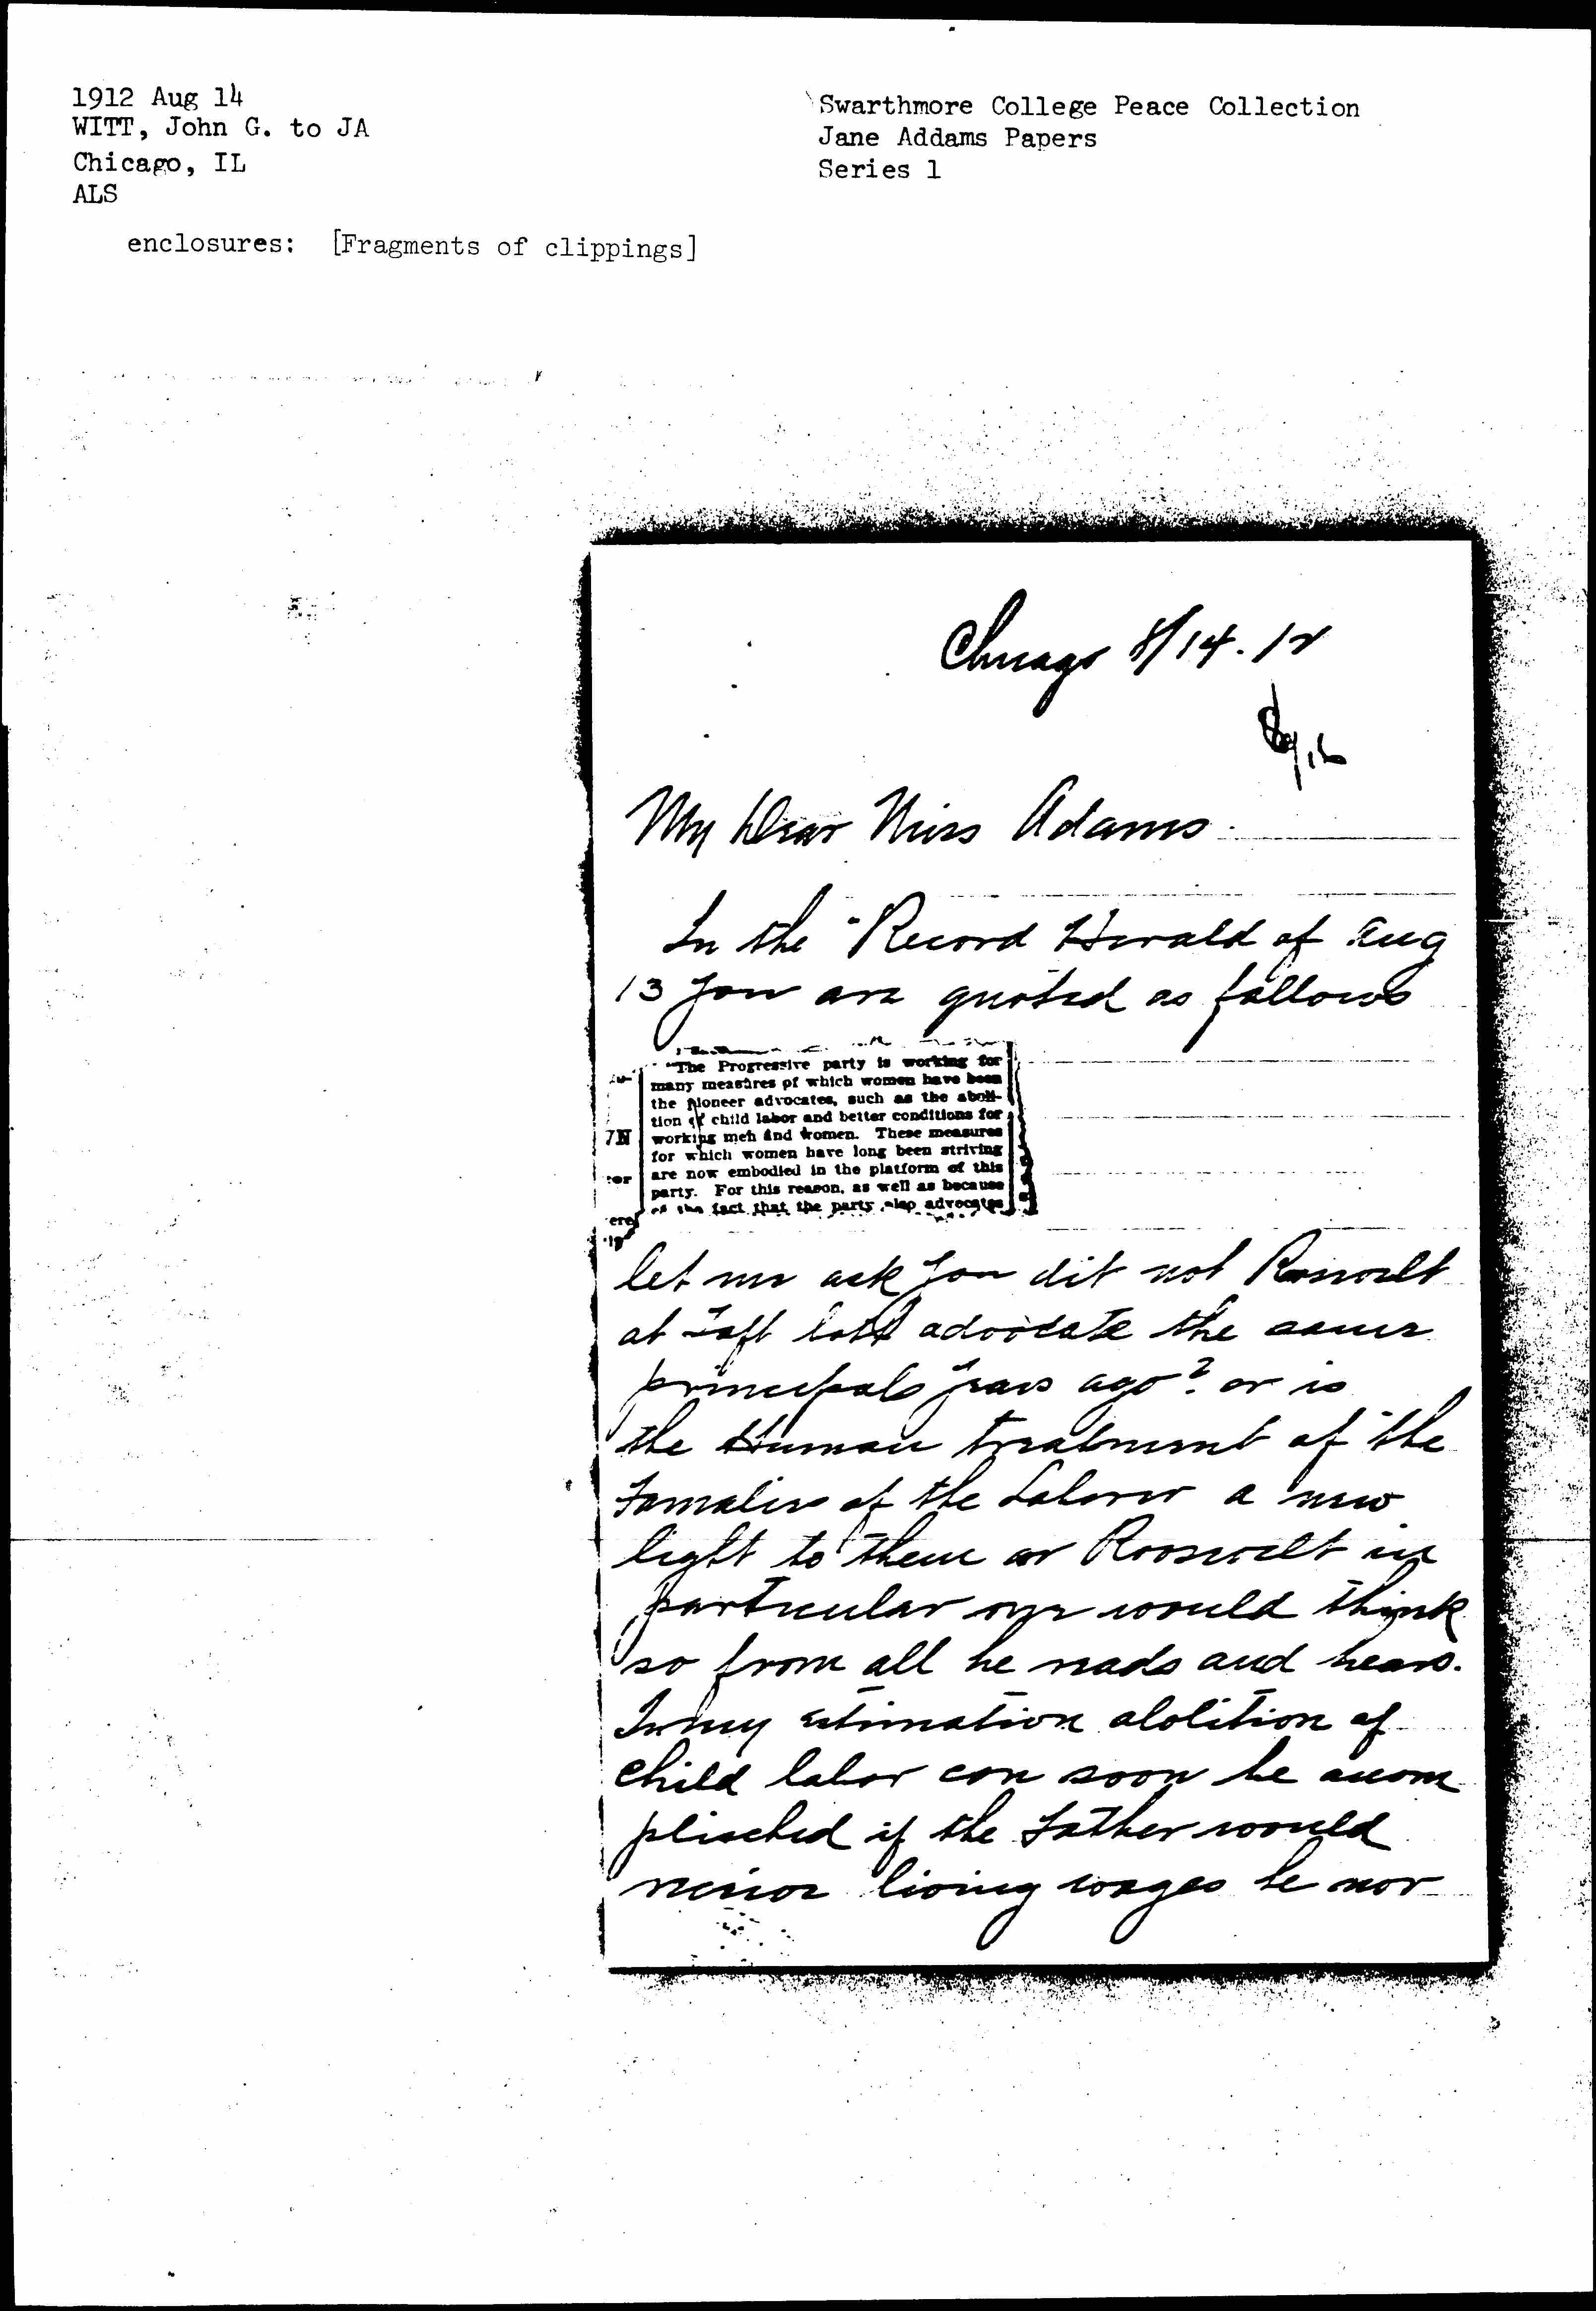 1912 Aug 14
WITT, John G. to JA
Chicago, IL
ALS
enclosures: [Fragments of clippings]
Swarthmore College Peace Collection
Jane Addams Papers
Series 1
Chicago 8/14.12
My Dear Miss Adams.
In the "Record Herald of Aug
13 you are quoted as follows
"The Progressive party is working for
many measures of which women have been
the pioneer advocates, such as the aboli-
tion of child labor and better conditions for
working men and women. These measures
for which women have long been striving
are now embodied in the platform of this
party. For this reason, as well as because
of the fact that the party also advocates
let me ask you dit not Roosvelt
at Taft advocate the same
principals years ago? or is
the Human treatment of the
Famalies of the Laborer a new
light to them or Rooswelt in
particular one would think
so from all he reads and hears.
In my estimation abolition of
child labor can soon be accom
plisched if the Father would
living wages he nor